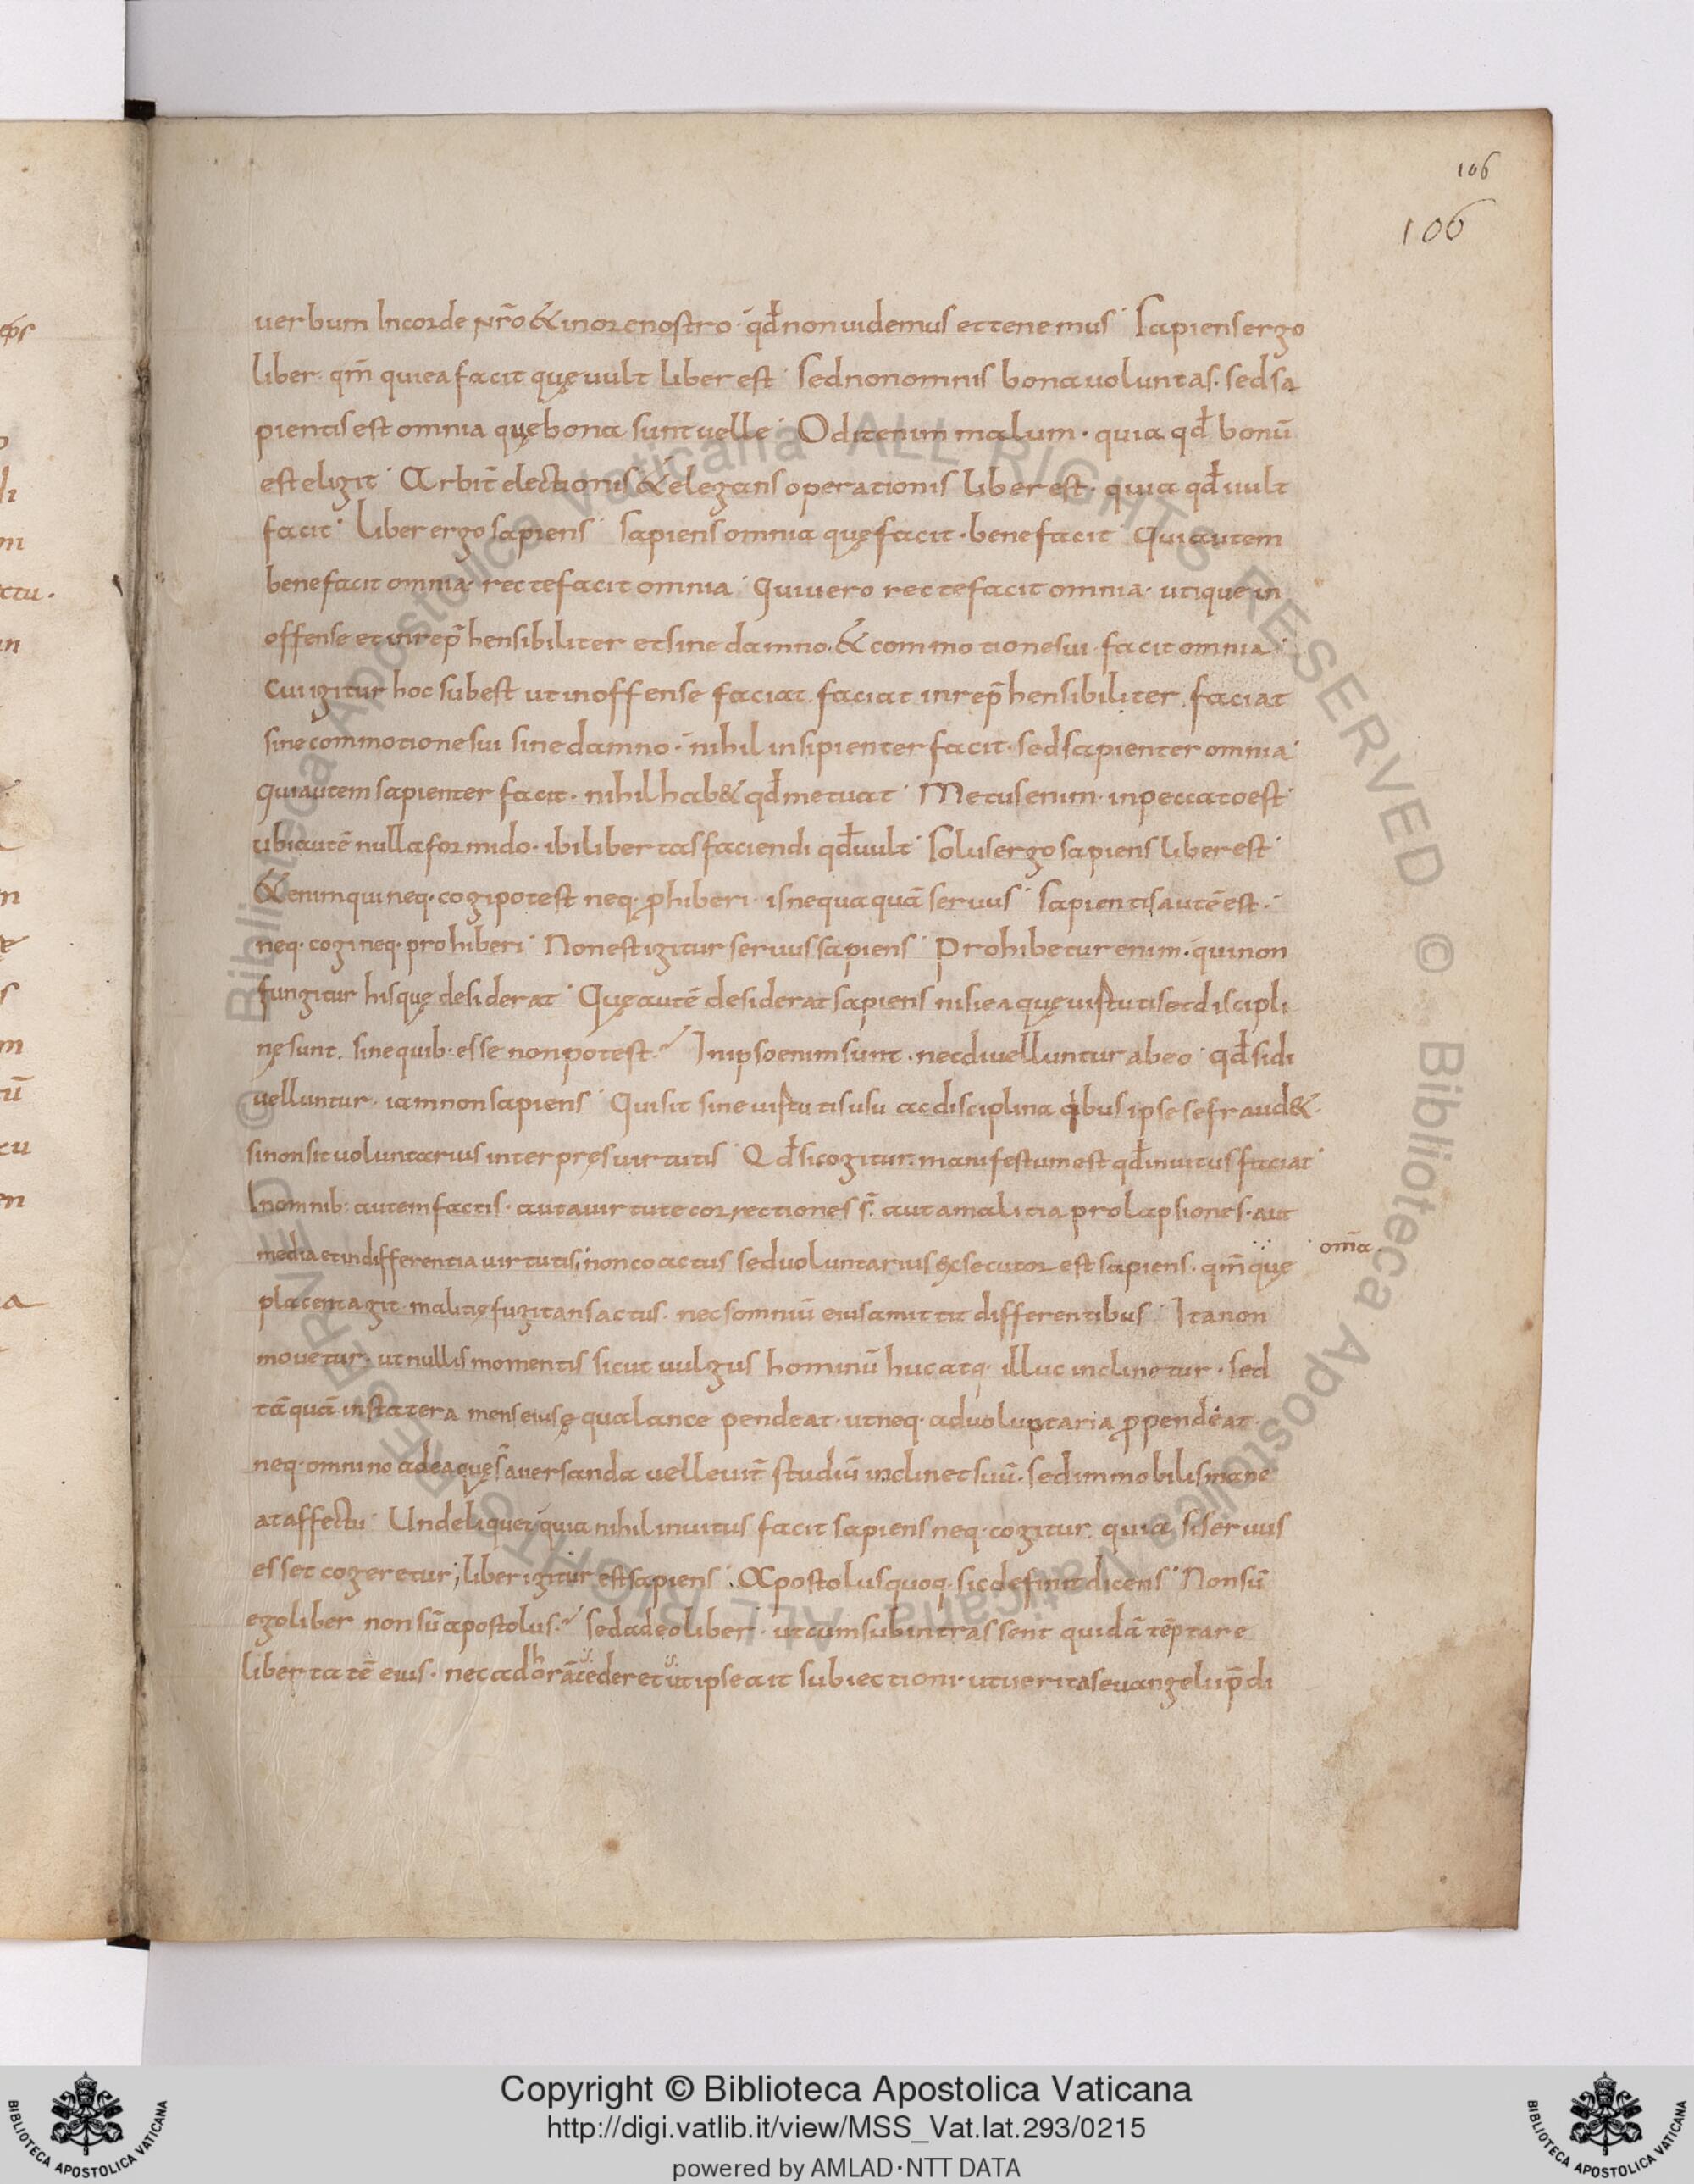 106
106
uerbum Incorde nr̃o & inore nostro · qđ non uidemus et tenemus · Sapiens ergo
liber · qm̄ qui ea facit quę uult liber est · sed non omnis bona uoluntas · sed sa
pientis est omnia quę bona sunt uelle · Odit enim malum · quia qđ bonū
est eligit · Arbit̄ electionis & elegans operationis liber est · quia qđ uult
facit · Liber ergo sapiens · Sapiens omnia quę facit · bene facit · Qui autem
bene facit omnia · recte facit omnia · Qui uero recte facit omnia · utique in
offense et inrep̄hensibiliter et sine damno · & commotione sui facit omnia ·
Cui igitur hoc subest ut inoffense faciat · faciat inrep̄hensibiliter · faciat
sine commotione sui sine damno · nihil insipienter facit · sed sapienter omnia ·
Qui autem sapienter facit · nihil hab& qđ metuat · Metus enim · in peccato est ·
ubi autē nulla formido · ibi libertas faciendi qđ uult · Solus ergo sapiens liber est ·
& enim qui neq · cogi potest neq · ꝓhiberi · is nequaquā seruus · Sapientis autē est ·
neq · cogi neq · prohiberi · Non est igitur seruus sapiens · Prohibetur enim · qui non
fungitur his quę desiderat · Quę autē desiderat sapiens nisi ea quę uirtutis et discipli
nę sunt · sine quib · esse non potest · In ipso enim sunt · nec diuelluntur ab eo · qđ si di
uelluntur · iam non sapiens · Qui sit sine uirtutis usu ac disciplina qibus ipse se fraud& ·
si non sit uoluntarius interpręs uirtutis · Qđ si cogitur · manifestum est qđ inuitus faciat ·
In omnib: autem factis · aut a uirtute correctiones s̄ · aut a malitia prolapsiones · aut
media et indifferentia uirtutis · non coactus sed uoluntarius ęxsecutor est sapiens · qm̄ quę
om̄a ·
placent agit · malitię fugitans actus · nec somniū eius amittit differentibus · Ita non
mouetur · ut nullis momentis sicut uulgus hominū huc atq · illuc inclinetur · sed
tāquā in statera mens eius ęqua lance pendeat · ut neq · ad uoluptaria ꝓpendeat ·
neq · omnino ad ea quę s̄ auersanda uel leuit̄ studiū inclinet suū · sed immobilis mane
at affectu · Unde liquet quia nihil inuitus facit sapiens neq · cogitur · quia si seruus
esset cogeretur; liber igitur est sapiens · Apostolus quoq · sic definit dicens · Non sū
ego liber non sū apostolus · sed adeo liber · ut cum subintrassent quidā tēptare
libertatē eius · nec ad horā cederet ut ipse ait subiectioni · ut ueritas euangelii p̄di
Copyright © Biblioteca Apostolica Vaticana
http://digi.vatlib.it/view/MSS_Vat.lat.293/0215
powered by AMLAD·NTT DATA